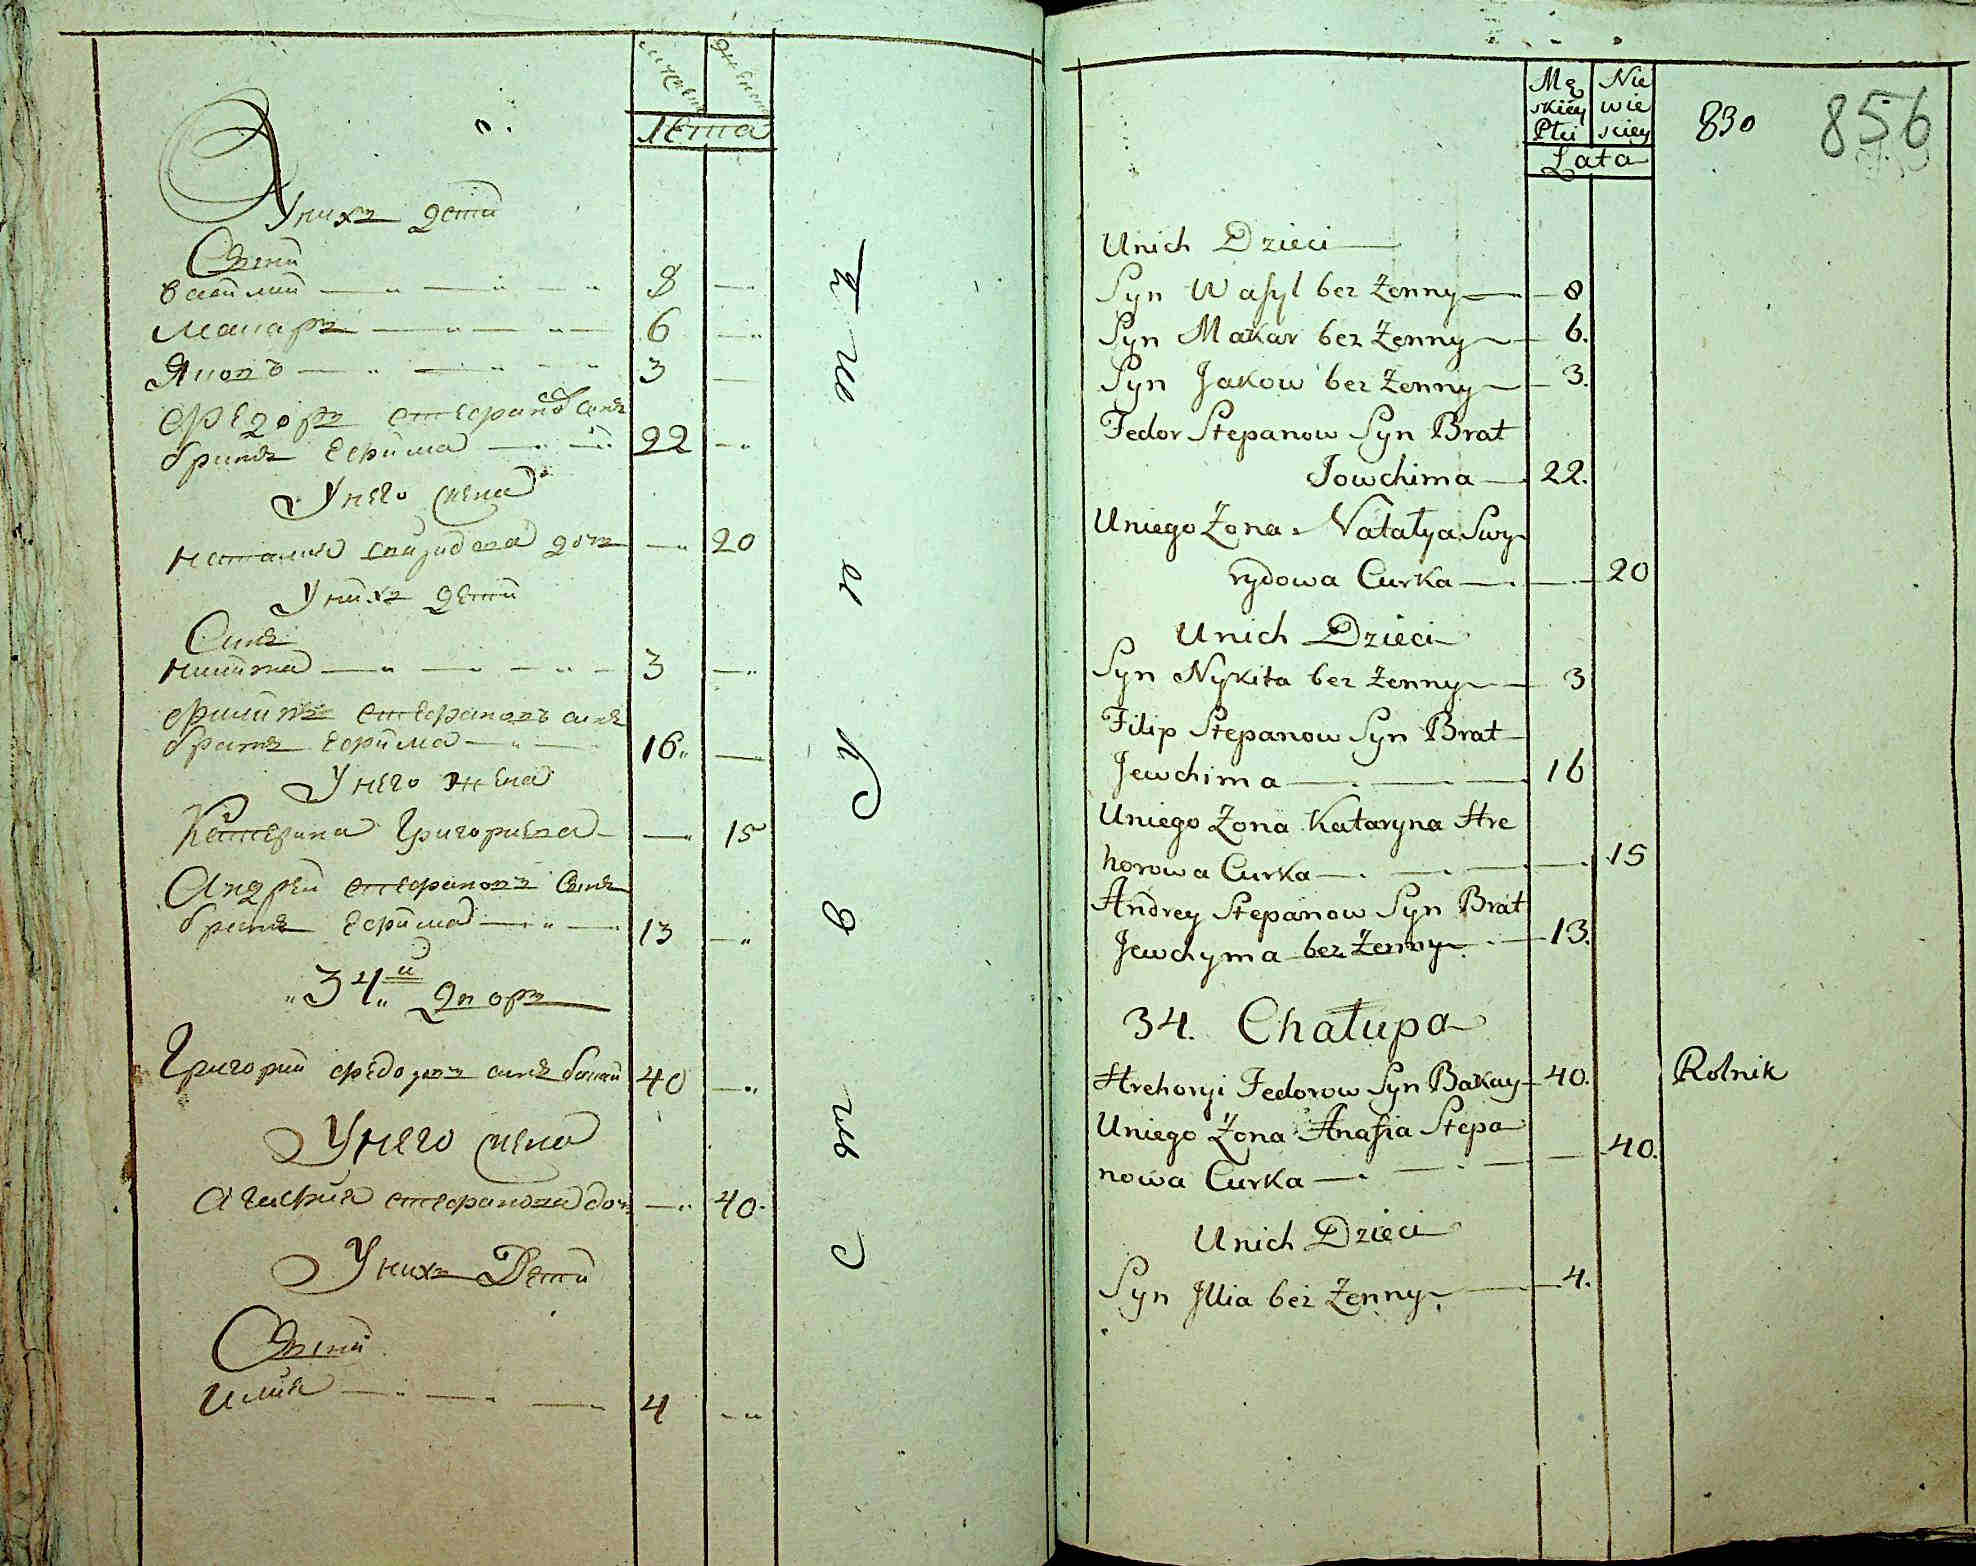 Лета
У нихъ дети
Сыны
Василий 8
Макаръ 6
Яковъ 3
Федоръ Степановъ сынъ
братъ Ефима 22
У него жена
Наталия Свиридова дочь 20
У нихъ дети
Сынъ
Никита 3
Филипъ Степановъ сынъ
братъ Ефима 16
У него жена
Катерина Григориева 15
Андрей Степановъ сынъ
братъ Ефима 13
34й дворъ
Григорий Федоровъ сынъ 40
У него жена
Степанова дочь 40
У нихъ Дети
Сыны
Илия 4
Mę Nie
skiey wie
Płci sciey
Lata
830
856
Unich Dzieci
Syn Wasyl bez Zenny 8
Syn Makar bez Zenny 6.
Syn Jakow bez Zenny 3.
Fedor Stepanow Syn Brat
Jowchima 22.
Uniego Żona Natałya Swy
rydowa Curka 20
Unich Dzieci
Syn Nykita bez Zenny 3
Filip Stepanow Syn Brat
Jewchima 16
Uniego Żona Kataryna Hre
horowa Curka 15
Andrey Stepanow Syn Brat
Jewchyma bez Zenny 13.
34. Chałupa
Hrehoryi Fedorow Syn Bakay 40. Rolnik
Uniego Żona Anasia Stepa
nowa Curka 40.
Unich Dzieci
Syn Illia bez Zenny 4.